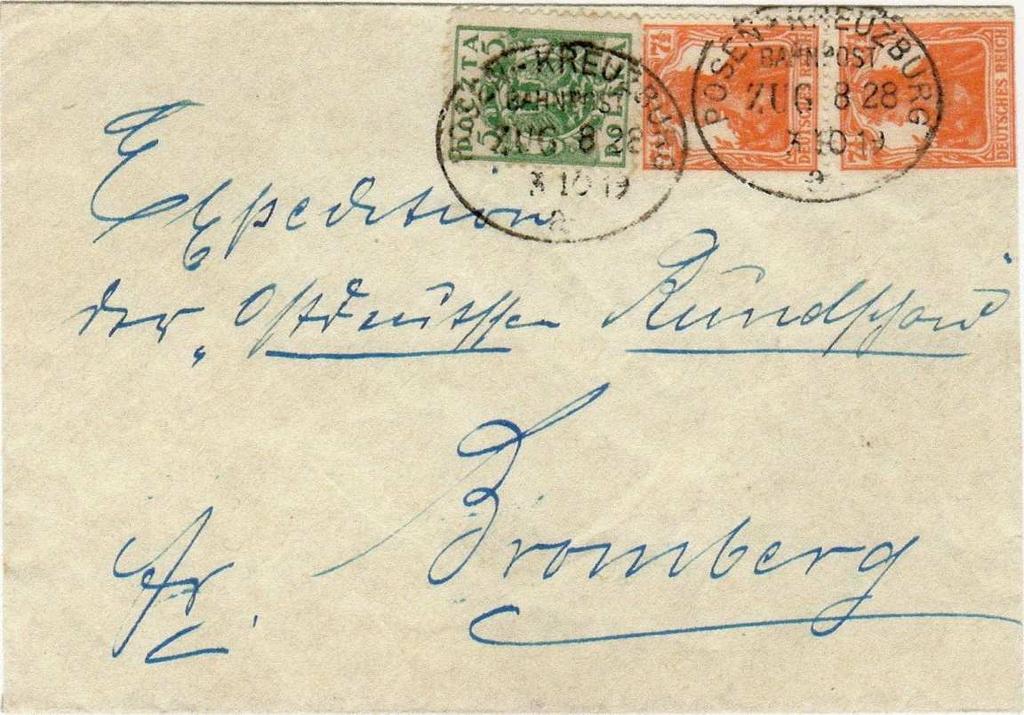 POCZTA
5 5
POLSKA
7½
DEUTSCHES REICH
7½
DEUTSCHES REICH
POSEN - KREUZBURG
BAHNPOST
ZUG 8 28
10 19
a
POSEN - KREUZBURG
BAHNPOST
ZUG 8 28
10 19
a
Expedition
der „Ostdeutschen Rundschau"
Bromberg